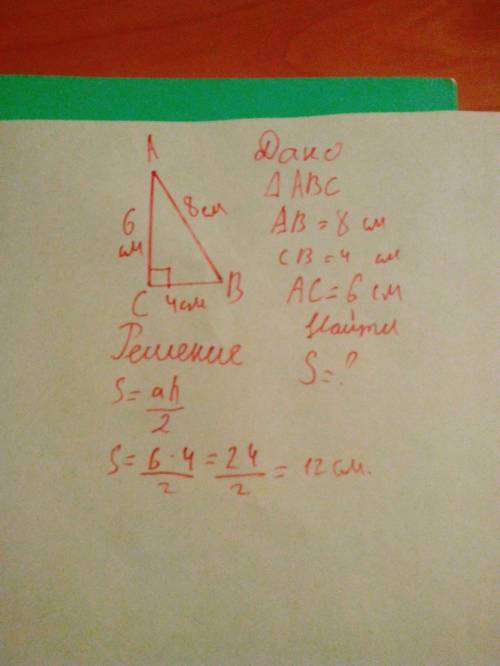 A
6 см
8 см
C
4 см
B
Дано
Δ ABC
AB = 8 см
CB = 4 см
AC = 6 см
Найти
S = ?
Решение
S = ah/2
S = 6·4/2 = 24/2 = 12 см.